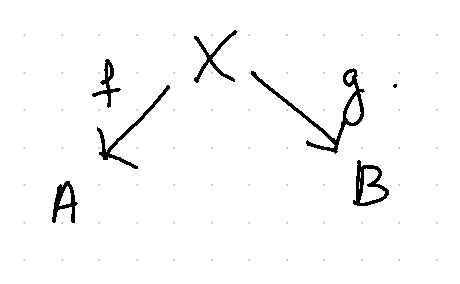 X
f g
A B